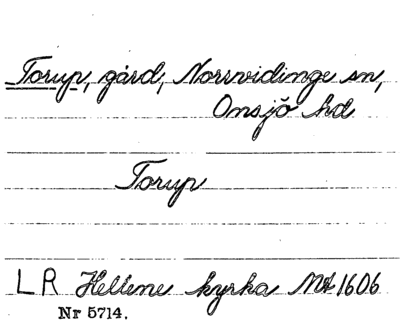 Torup, gård, Norrvidinge sn,
Onsjö hd
Torup
LR Hellene kyrka Mt 1606
Nr 5714.